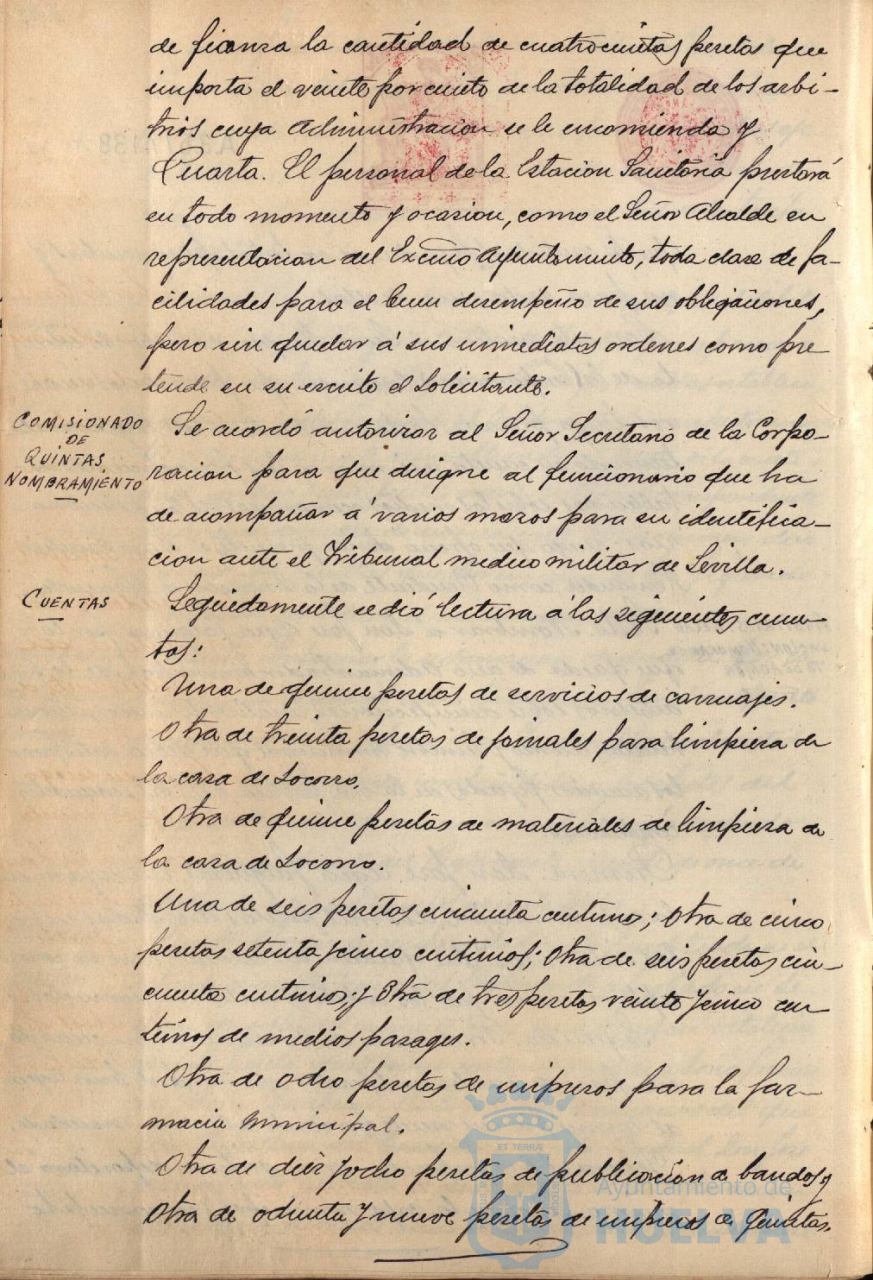 de fianza la cantidad de cuatrocientas pesetas que
importa el veinte por ciento de la totalidad de los arbi-
trios cuya Administracion se le encomienda y
Cuarta. El personal de la Estacion Sanitaria prestará
en todo momento y ocasion, como el Señor Alcalde en
representacion del Excmo Ayuntamiento, toda clase de fa-
cilidades para el buen desempeño de sus obligaciones,
pero sin quedar á sus inmediatas ordenes como pre
tende en su escrito el solicitante.
COMISIONADO
DE
QUINTAS
NOMBRAMIENTO
Se acordó autorizar al Señor Secretario de la Corpo-
racion para que designe al funcionario que ha
de acompañar á varios mozos para su identifica-
cion ante el Tribunal medico militar de Sevilla.
CUENTAS
Seguidamente se dió lectura á las siguientes cuen
tas:
Una de quince pesetas de servicios de carruajes.
Otra de treinta pesetas de jornales para limpieza de
la casa de Socorro.
Otra de quince pesetas de materiales de limpieza de
la casa de Socorro.
Una de seis pesetas cincuenta centimos; Otra de cinco
pesetas setenta y cinco centimos; Otra de seis pesetas cin-
cuenta centimos; y Otra de tres pesetas veinte y cinco cen
timos de medios pasages.
Otra de ocho pesetas de impresos para la far-
macia municipal.
Otra de diez y ocho pesetas de publicación de bandos y
Otra de ochenta y nueve pesetas de impresos de Quintas.
ET TERRÆ
Ayuntamiento de
HUELVA